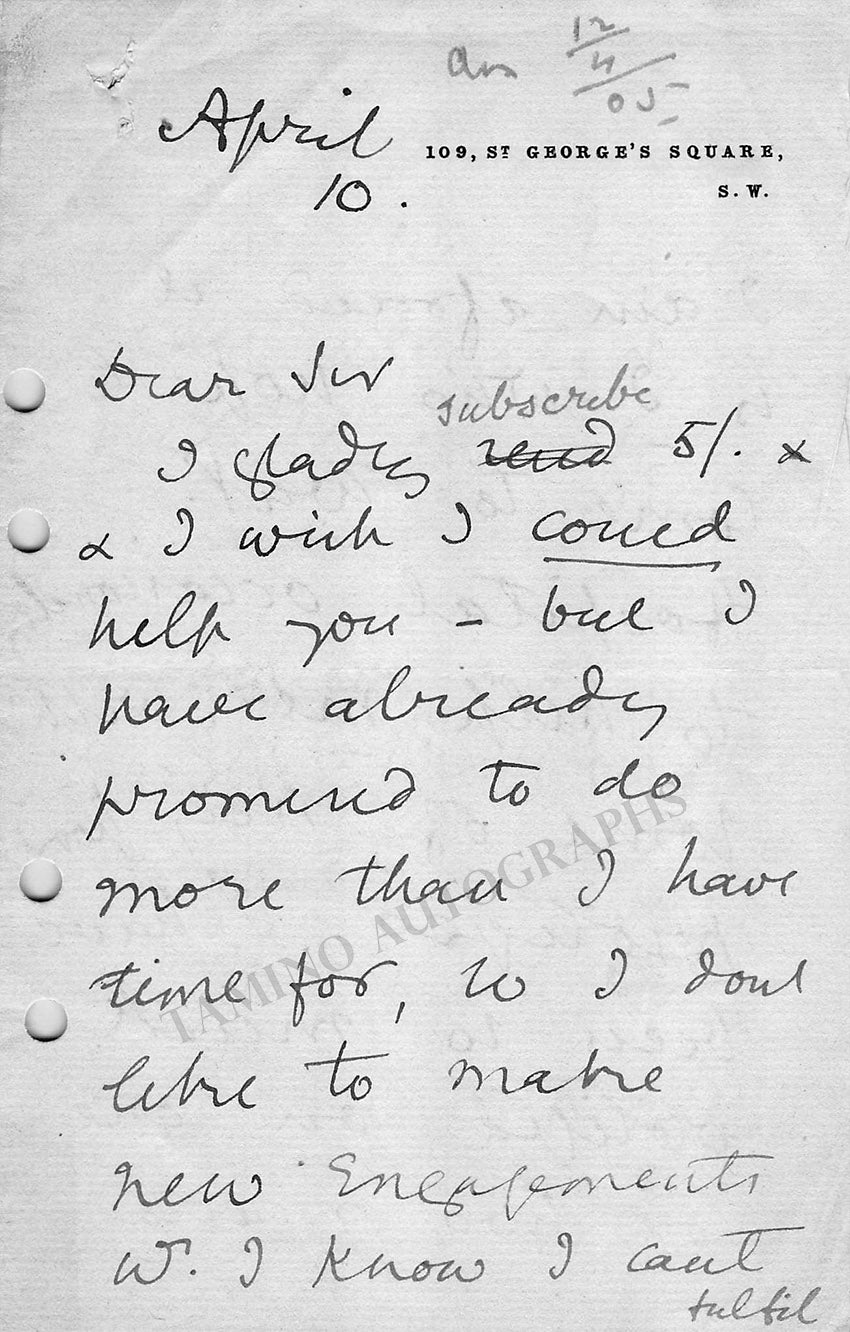 ans 12/4/05
April
10.
109, ST GEORGE'S SQUARE,
S. W.
Dear Sir
subscribe
I gladly send 5/. x
& I wish I could
help you – but I
have already
promised to do
more than I have
time for, so I dont
like to make
new Engagements
wh. I know I cant
fulfil
TAMINO AUTOGRAPHS